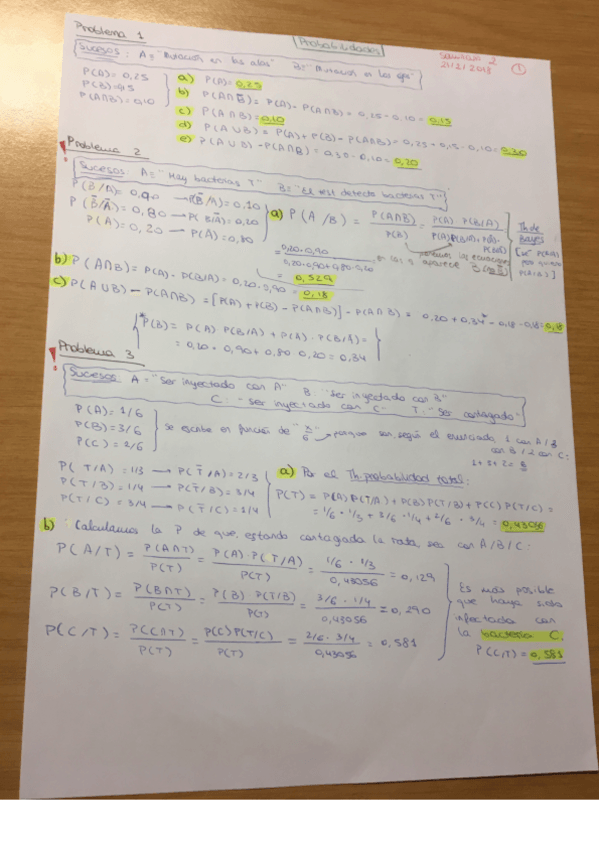 Problema 1
Probabilidades
Seminario 2
21/2/2018
1
Sucesos: A = "Mutación en las alas" B = "Mutación en los ojos"
P(A) = 0,25
P(B) = 0,15
P(A∩B) = 0,10
a) P(A) = 0,25
b) P(A∩B̄) = P(A) - P(A∩B) = 0,25 - 0,10 = 0,15
c) P(A∩B) = 0,10
d) P(A∪B) = P(A) + P(B) - P(A∩B) = 0,25 + 0,15 - 0,10 = 0,30
e) P(A∪B) - P(A∩B) = 0,30 - 0,10 = 0,20
! Problema 2
Sucesos: A = "Hay bacterias T" B = "El test detecta bacterias T"
P(B/A) = 0,90 → P(B̄/A) = 0,10
P(B̄/Ā) = 0,80 → P(B/Ā) = 0,20
P(A) = 0,20 → P(Ā) = 0,80
a) P(A/B) = P(A∩B) / P(B) = P(A) · P(B/A)
Th de Bayes
= 0,20 · 0,90 / 0,20 · 0,90 + 0,80 · 0,20
= 0,529
b) P(A∩B) = P(A) · P(B/A) = 0,20 · 0,90 = 0,18
c) P(A∪B) - P(A∩B) = [P(A) + P(B) - P(A∩B)] - P(A∩B) = 0,20 + 0,34* - 0,18 - 0,18 = 0,18
*P(B) = P(A) P(B/A) + P(Ā) · P(B/Ā) =
= 0,20 · 0,90 + 0,80 · 0,20 = 0,34
! Problema 3
Sucesos: A = "Ser inyectado con A" B: "Ser inyectado con B"
C: - Ser inyectado con C - T: "Ser contagiado"
P(A) = 1/6
P(B) = 3/6
P(C) = 2/6
Se escribe en función de "x/6" → porque son, según el enunciado, 1 con A / 3
con B / 2 con C:
1+3+2 = 6
P(T/A) = 1/3 → P(T̄/A) = 2/3
P(T/B) = 1/4 → P(T̄/B) = 3/4
P(T/C) = 3/4 → P(T̄/C) = 1/4
a) Por el Th. probabilidad total:
P(T) = P(A) P(T/A) + P(B) P(T/B) + P(C) P(T/C) =
= 1/6 · 1/3 + 3/6 · 1/4 + 2/6 · 3/4 = 0,43056
b) Calculamos la P de que, estando contagiada la rata, sea con A/B/C.
P(A/T) = P(A∩T) / P(T) = P(A) · P(T/A) / P(T) = 1/6 · 1/3 / 0,43056 = 0,129
P(B/T) = P(B∩T) / P(T) = P(B) P(T/B) / P(T) = 3/6 · 1/4 / 0,43056 = 0,290
P(C/T) = P(C∩T) / P(T) = P(C) P(T/C) / P(T) = 2/6 · 3/4 / 0,43056 = 0,581
Es más posible
que haya sido
infectada con
la bacteria C.
P(C/T) = 0,581